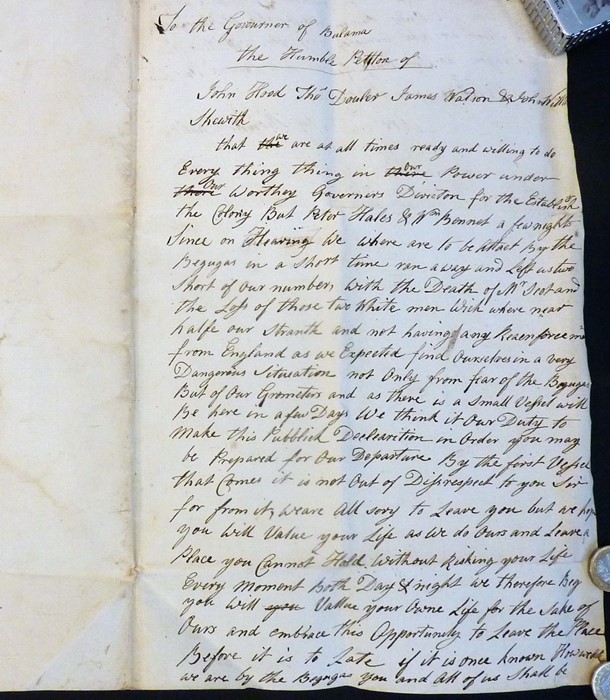 To the Governer of Bulama
the Humble Petition of
John Hood Thos Douler James Watson & John
Shewith
that the we are at all times ready and willing to do
Every thing thing in there Our Power under
there Our Worthey Governers Diriction for the Establish
the Colony But Peter Hales & Wm Bennet a few nights
Since on Hearing We where are to be Attact By the
Begugas in a Short time ran away and Left us two
Short of our numbers with the Death of Mr Scot and
the Loss of those two White men Wich where near
halfe our Stranth and not having any Reaenforceme
from England as we Expected find Ourselves in a very
Dangerous Situation not Only from fear of the Begugas
But of Our Grometors and as there is a Small Vessel will
Be here in a few Days We think it Our Duty to
Make this Pubblick Declearition in Order you may
be Prepared for Our Departure By the first Vessel
that Comes it is not Out of Disrespect to you Sir
for from it, we are All sory to Leave you but we hope
you Will Value your Life as We do Ours and Leave a
Place you Cannot Hold Without Risking your Life
Every Moment Both Day & night we therefore Beg
you Will you Vallue your Owne Life for the Sake of
Ours and embrace this Opportunity to Leave the Place
Before it is to Late if it is once known How weak
we are by the Begugas you and All of us Shall be